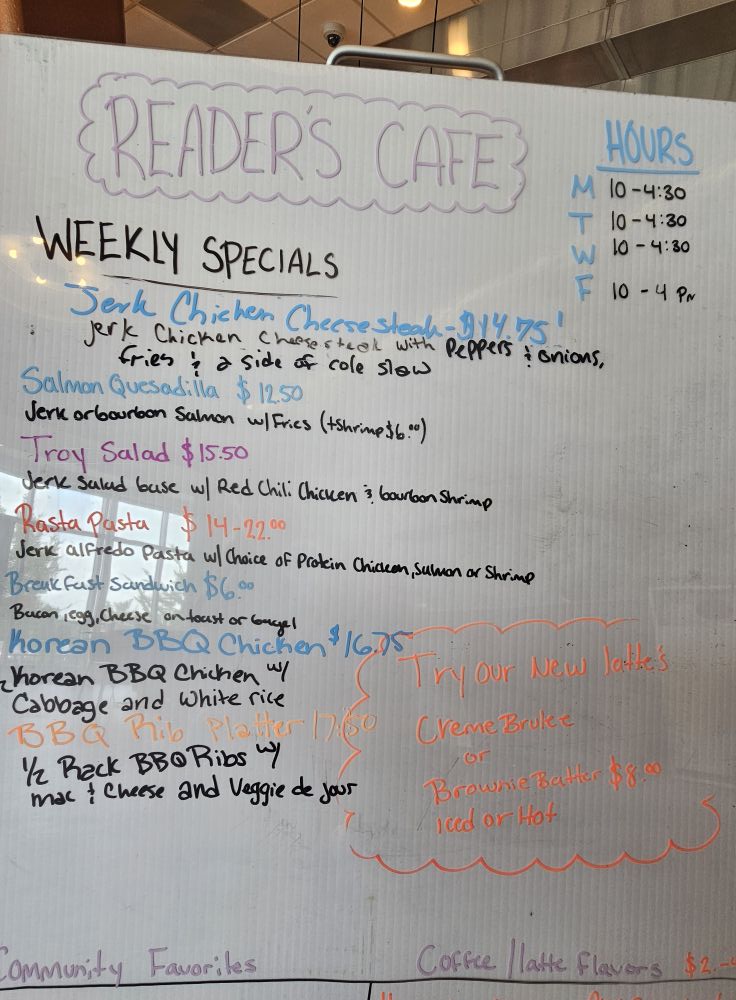 READER'S CAFE
HOURS
M 10-4:30
T 10-4:30
W 10-4:30
F 10-4 PM
WEEKLY SPECIALS
Jerk Chicken Cheesesteak-$14.75!
Jerk Chicken Cheesesteak with Peppers & onions,
fries & a side of cole slow
Salmon Quesadilla $12.50
Jerk or bourbon Salmon w/Fries (+Shrimp $6.00)
Troy Salad $15.50
Jerk Salad base w/ Red Chili Chicken & bourbon Shrimp
Rasta Pasta $14-22.00
Jerk alfredo Pasta w/Choice of Protein Chicken, Salmon or Shrimp
Breakfast Sandwich $6.00
Bacon, egg, Cheese on toast or bagel
Korean BBQ Chicken $16.75
Korean BBQ Chicken w/
Cabbage and white rice
BBQ Rib Platter 17.50
1/2 Rack BBQ Ribs w/
mac & Cheese and Veggie de jour
Try our New latte's
Creme Brulee
or
Brownie Batter $8.00
iced or Hot
Community Favorites
Coffee/latte Flavors $2.-